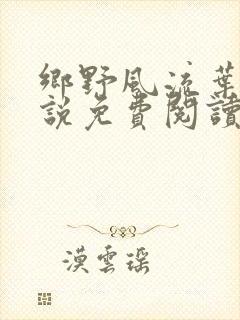 鄉野風流葉
說免費閱讀
漢雲瑶